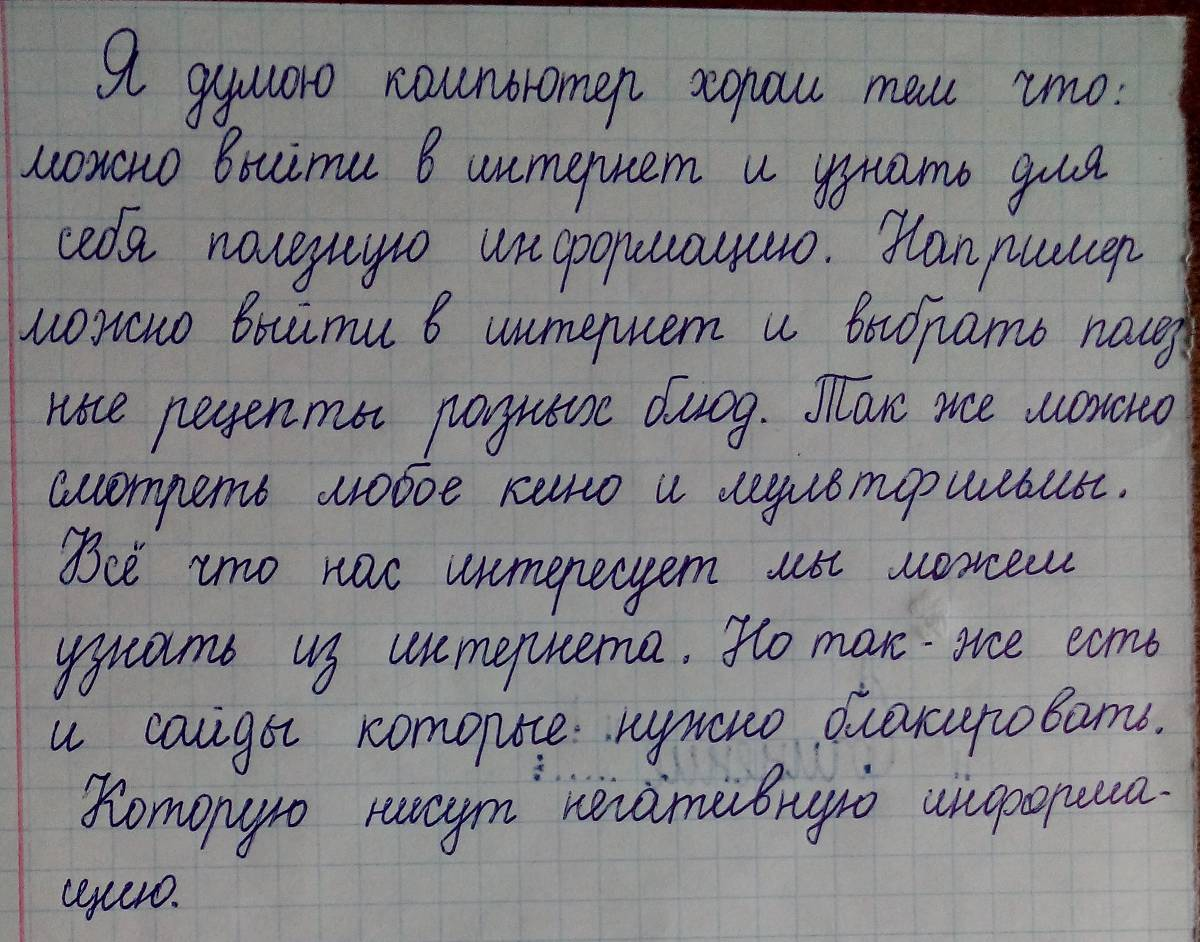 Я думою компьютер хорош тем что:
можно выйти в интернет и узнать для
себя полезную информацию. Например
можно выйти в интернет и выбрать полез
ные рецепты разных блюд. Так же можно
смотреть любое кино и мультфильмы.
Всё что нас интересует мы можем
узнать из интернета. Но так-же есть
и сайды которые нужно блакировать.
Которую нисут негативную информа-
цию.